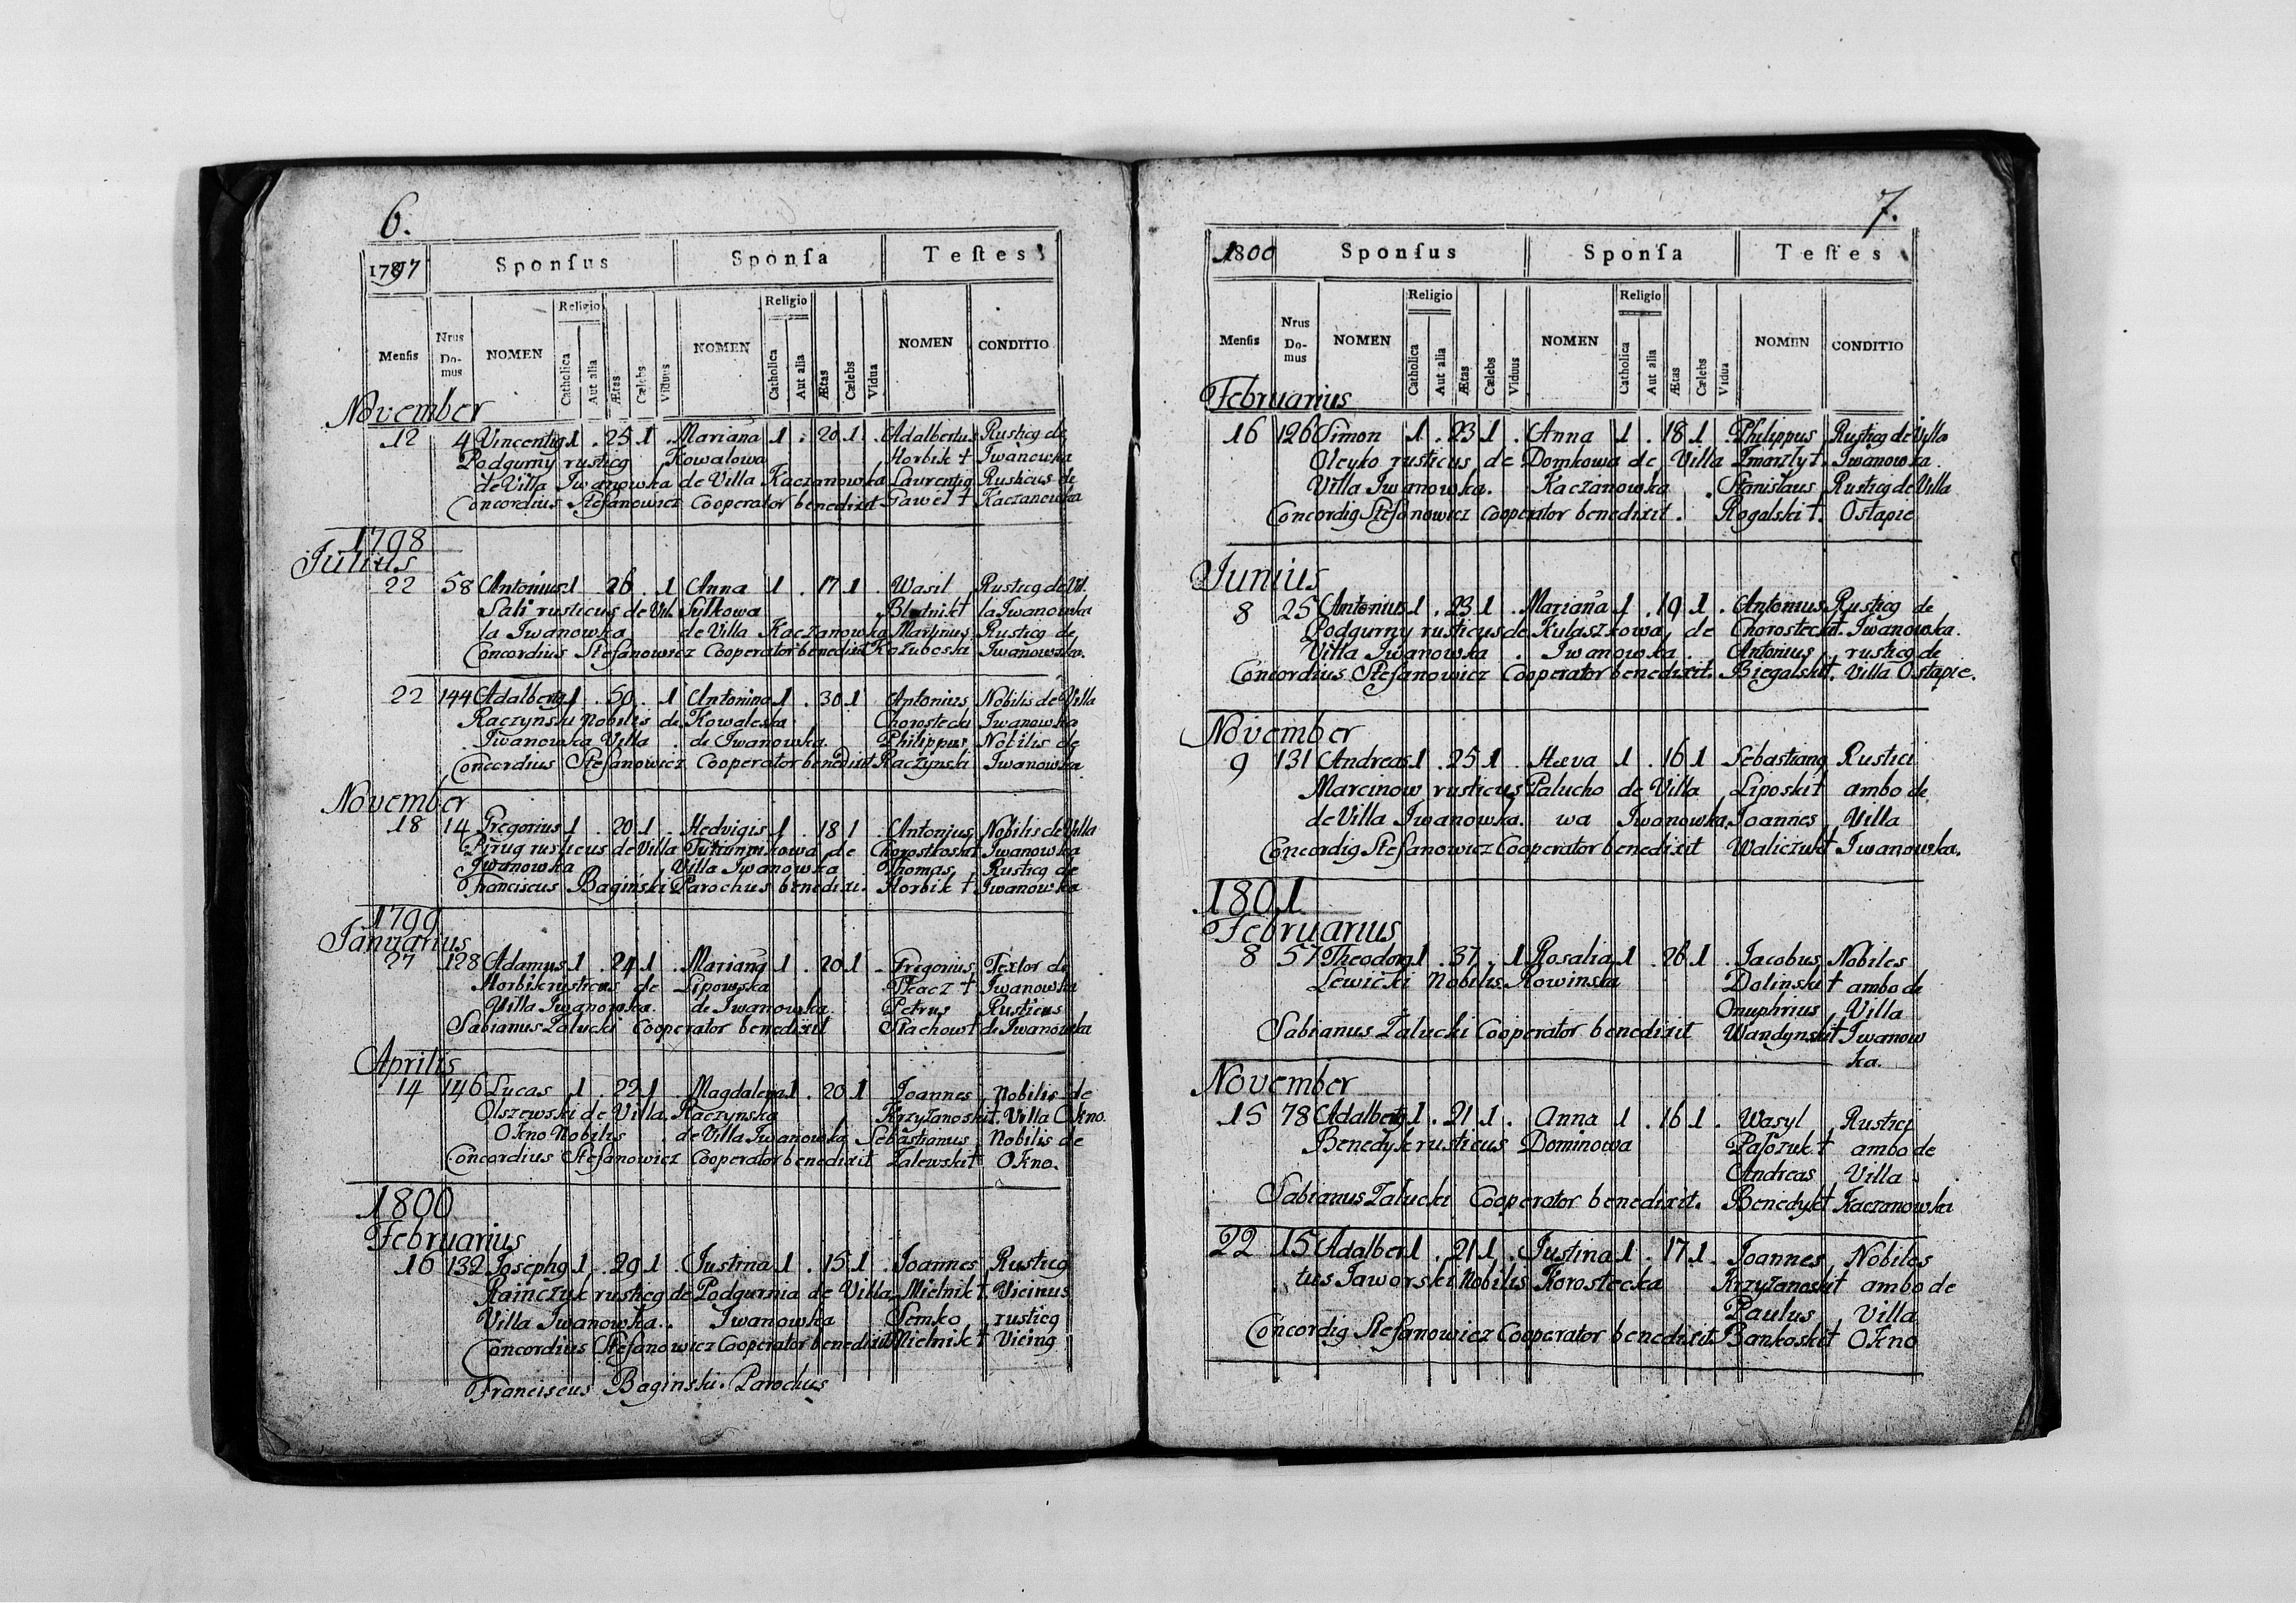 6.
1797 Sponſus Sponſa Teſtes
Menſis Nrus Do-mus NOMEN Religio Catholica Aut alia Ætas Cælebs Viduus NOMEN Religio Catholica Aut alia Ætas Cælebs Vidua NOMEN CONDITIO
November
12 4 Vincentig 1 . 25 1 . Marianna 1 . 20 1 . Adalbertus Rusticg de
Podgurny rusticg Kowalowa Horbik † Iwanowka
de Villa Iwanowka de Villa Kaczanowka Laurentig Rusticus de
Concordius Stefanowicz Cooperator benedixit Paweł † Kaczanowka
1798
Iulius
22 58 Antonius 1 26 . 1 Anna 1 . 17 1 . Wasil Rusticg de Vil.
Sali rusticus de Vil. Sulkowa † la Iwanowka
la Iwanowka de Villa Kaczanowka Martinus Rusticg de
Concordius Stefanowicz Cooperator benedixit Iwanowka.
22 144 Adalbertg 1 . 50 . 1 Antonina 1 . 30 1 Antonius Nobilis de Villa
Raczynski nobilis de Kowaleska Chorostecki Iwanowka
Iwanowka Villa . de Iwanowka. Philippus Nobilis de
Concordius Stefanowicz Cooperator benedixit Raczynski Iwanowka
November
18 14 Gregorius 1 . 20 1 . Hedvigis 1 . 18 1 . Antonius Nobilis de Villa
Pirug rusticus de Villa de Chorostkoski † Iwanowka
Iwanowka Villa Iwanowka Thomas Rusticg de
Franciscus Bagiński Parochus benedixi. Horbik † Iwanowka
1799
Ianuarius
27 128 Adamus 1 . 24 1 . Mariana 1 . 20 1 . Gregorius Textor de
Horbik rusticus de Lipowska Tkacz † Iwanowka
Villa Iwanowka. de Iwanowka. Petrus Rusticus
Sabianus Zalucki Cooperator benedixit Stachow † de Iwanowka
Aprilis
14 146 Lucas 1 . 22 1 . Magdalena 1 . 20 1 Ioannes Nobilis de
Olszewski de Villa Raczynska Krzyżanoski †. Villa Okno.
Okno Nobilis . de Villa Iwanowka Sebastianus Nobilis de
Concordius Stefanowicz Cooperator benedixit Zalewski † Okno.
1800
Februarius
16 132 Iosephg 1 . 29 1 . Iustina 1 . 15 1 . Ioannes Rusticg
Rainczuk rusticg de Podgurnia de Villa Mielnik †. Vicinus
Villa Iwanowka. . Iwanowka Semko rusticg
Concordius Stefanowicz Cooperator benedixit Mielnik † Vicing
Franciscus Baginski. Parochus
7.
1800 Sponſus Sponſa Teſtes
Menſis Nrus Do-mus NOMEN Religio Catholica Aut alia Ætas Cælebs Viduus NOMEN Religio Catholica Aut alia Ætas Cælebs Vidua NOMEN CONDITIO
Februarius
16 126 Simon 1 . 23 1 . Anna 1 . 18 1 . Philippus Rusticg de Villa
Oleyko rusticus de Domkowa de Villa Zmarzły †. Iwanowka.
Villa Iwanowka. Kaczanowka . Stanisłaus Rusticg de Villa
Concordig Stefanowicz Cooperator benedixit . Rogalski †. Ostapie
Iunius
8 25 Antonius 1 . 23 1 . Marianna 1 . 19 1 . Antonius Rusticg de
Podgurny rusticus de Kulaszkowa, de Chorostecki †. Iwanowka.
Villa Iwanowka . Iwanowka . Antonius rusticg de
Concordius Stefanowicz Cooperator benedixit. Biegalski †. Villa Ostapie.
November
9 131 Andreas 1 . 25 1 . Haeva 1 . 16 1 Sebastiang Rustici
Marcinow rusticus Palucho de Villa Liposki † ambo de
de Villa Iwanowka. wa Iwanowka. Ioannes Villa
Concordig Stefanowicz Cooperator benedixit Waliczuk † Iwanowka.
1801
Februarius
8 57 Theodorg 1 . 37 . 1 Rosalia 1 . 26 1 . Iacobus Nobiles
Lewicki Nobilis Rowinska Dolinski † ambo de
Onuphrius Villa
Sabianus Zalucki Cooperator benedixit Wandynski † Iwanow
ka.
November
15 78 Adalbertg 1 . 21 1 . Anna 1 . 16 1 . Wasyl Rustici
Benedyk rusticus Dominowa † ambo de
Andreas Villa
Sabianus Zalucki Cooperator benedixit. Benedyk † Kaczanowka
22 15 Adalber 1 . 21 1 . Iustina 1 . 17 1 . Ioannes Nobiles
tus Iaworski Nobilis Korostecka Krzyżanoski † ambo de
Paulus Villa
Concordig Stefanowicz Cooperator benedixit Bankoski † Okno